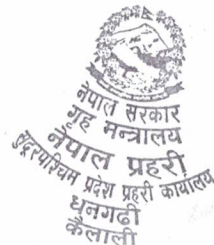 नेपाल सरकार
गृह मन्त्रालय
नेपाल प्रहरी
सुदूरपश्चिम प्रदेश प्रहरी कार्यालय
धनगढी
कैलाली